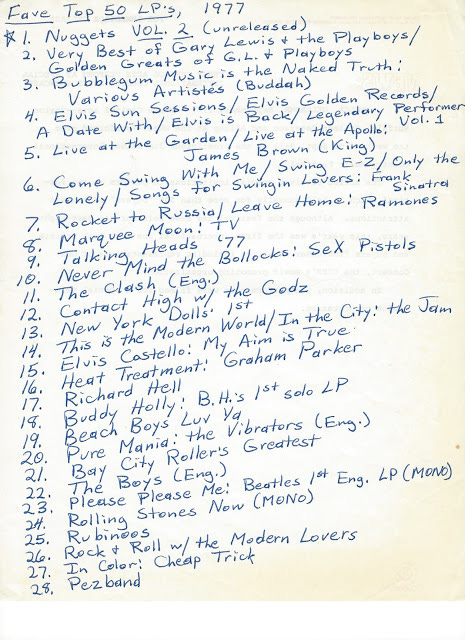 Fave Top 50 LP's, 1977
☆ 1. Nuggets VOL. 2 (unreleased)
2. Very Best of Gary Lewis & the Playboys/
Golden Greats of G.L. & Playboys
3. Bubblegum Music is the Naked Truth:
Various Artistes (Buddah)
4. Elvis Sun Sessions/Elvis Golden Records/
A Date With/Elvis is Back/Legendary Performer
Vol. 1
5. Live at the Garden/Live at the Apollo:
James Brown (King)
6. Come Swing With Me/Swing E-Z/Only the
Lonely/Songs for Swingin Lovers: Frank
Sinatra
7. Rocket to Russia/Leave Home: Ramones
8. Marquee Moon: TV
9. Talking Heads '77
10. Never Mind the Bollocks: SeX Pistols
11. The Clash (Eng.)
12. Contact High w/ the Godz
13. New York Dolls: 1st
14. This is the Modern World/In the City: the Jam
15. Elvis Costello: My Aim is True
16. Heat Treatment: Graham Parker
17. Richard Hell
18. Buddy Holly: B.H.'s 1st solo LP
19. Beach Boys Luv Ya
20. Pure Mania: the Vibrators (Eng.)
21. Bay City Roller's Greatest
22. The Boys (Eng.)
23. Please Please Me: Beatles 1st Eng. LP (MONO)
24. Rolling Stones Now (MONO)
25. Rubinoos
26. Rock & Roll w/ the Modern Lovers
27. In Color: Cheap Trick
28. Pezband